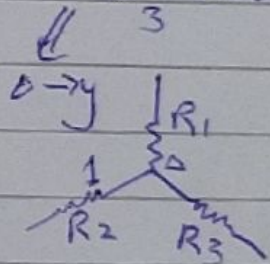 3
Δ → y
R1
1
R2
R3